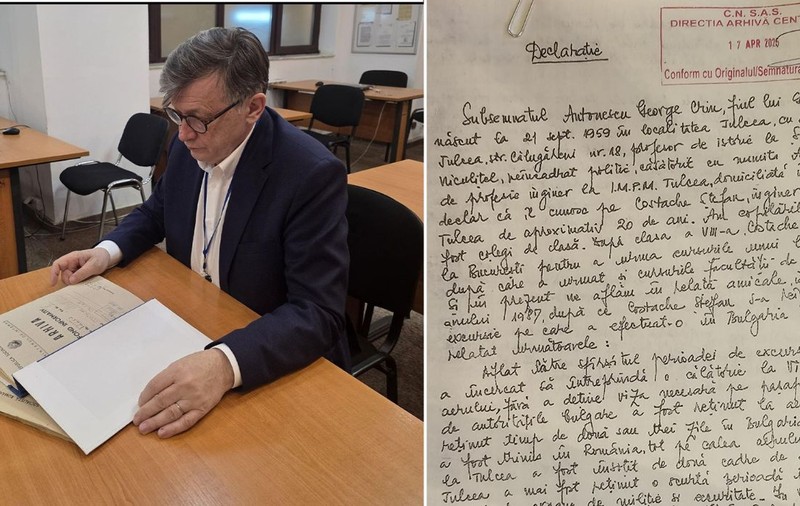 FOND INFORMATIV
ARHIVA
C.N.S.A.S.
DIRECȚIA ARHIVĂ CENT
17 APR 2025
Conform cu Originalul/Semnătura
Declarație
Subsemnatul Antonescu George Crin, fiul lui
născut la 21 sept. 1959 în localitatea Tulcea, cu
Tulcea, str. Călugăreni nr. 18, profesor de istorie la
Niculițel, neîncadrat politic, căsătorit cu numita
de profesie inginer la I.M.P.M. Tulcea, domiciliată
declar că îl cunosc pe Costache Ștefan, inginer
Tulcea de aproximativ 20 de ani. Am copilărit
fost colegi de clasă. După clasa a VIII-a, Costache
la București pentru a urma cursurile unui
după care a urmat și cursurile facultății de
Și în prezent ne aflăm în relații amicale,
anului 1987, după ce Costache Ștefan s-a
excursie pe care a efectuat-o în Bulgaria
relatat următoarele:
Aflat către sfîrșitul perioadei de excurs
a încercat să întreprindă o călătorie la
aerului, fără a deține viza necesară pe pașap
de autoritățile bulgare a fost reținut la
reținut timp de două sau trei zile în Bulgaria
a fost trimis în România, tot pe calea aerului
la Tulcea a fost însoțit de două cadre de
Tulcea a mai fost reținut o scurtă perioadă
de miliție și securitate. În